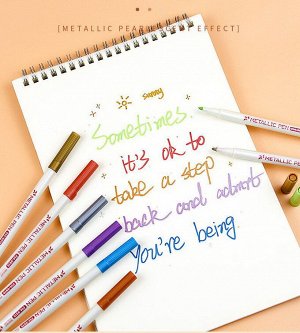 [METALLIC PEARLESCENT EFFECT]
sunny
Sometimes.
it's ok to
take a step
back and admit
you're being
METALLIC PEN
METALLIC PEN
METALLIC PEN
METALLIC PEN
METALLIC PEN
METALLIC PEN
METALLIC PEN